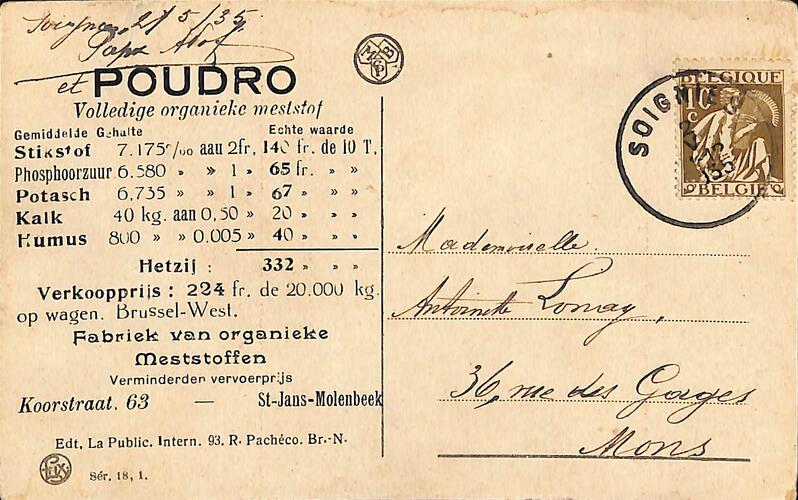 Soignies 21/5/35
Papa
et POUDRO
Volledige organieke meststof
Gemiddelde Gehalte Echte waarde
Stikstof 7.175‰ aau 2fr, 140 fr. de 10 T.
Phosphoorzuur 6.580 » » 1 » 65 fr. » »
Potasch 6,735 » 1 » 67 » » »
Kalk 40 kg. aan 0,50 » 20 » » »
Humus 800 » » 0.005 » 40 » » »
Hetzij : 332 » » »
Verkoopprijs : 224 fr. de 20.000 kg.
op wagen. Brussel-West.
Fabriek van organieke
Meststoffen
Verminderden vervoerprijs
Koorstraat. 63 — St-Jans-Molenbeek
Edt. La Public. Intern. 93. R. Pachéco. Br.-N.
Sér. 18, 1.
BELGIQUE
10 c
BELGIË
SOIGNIES
Mademoiselle.
Antoinette Lomay,
36, rue des Gages
Mons